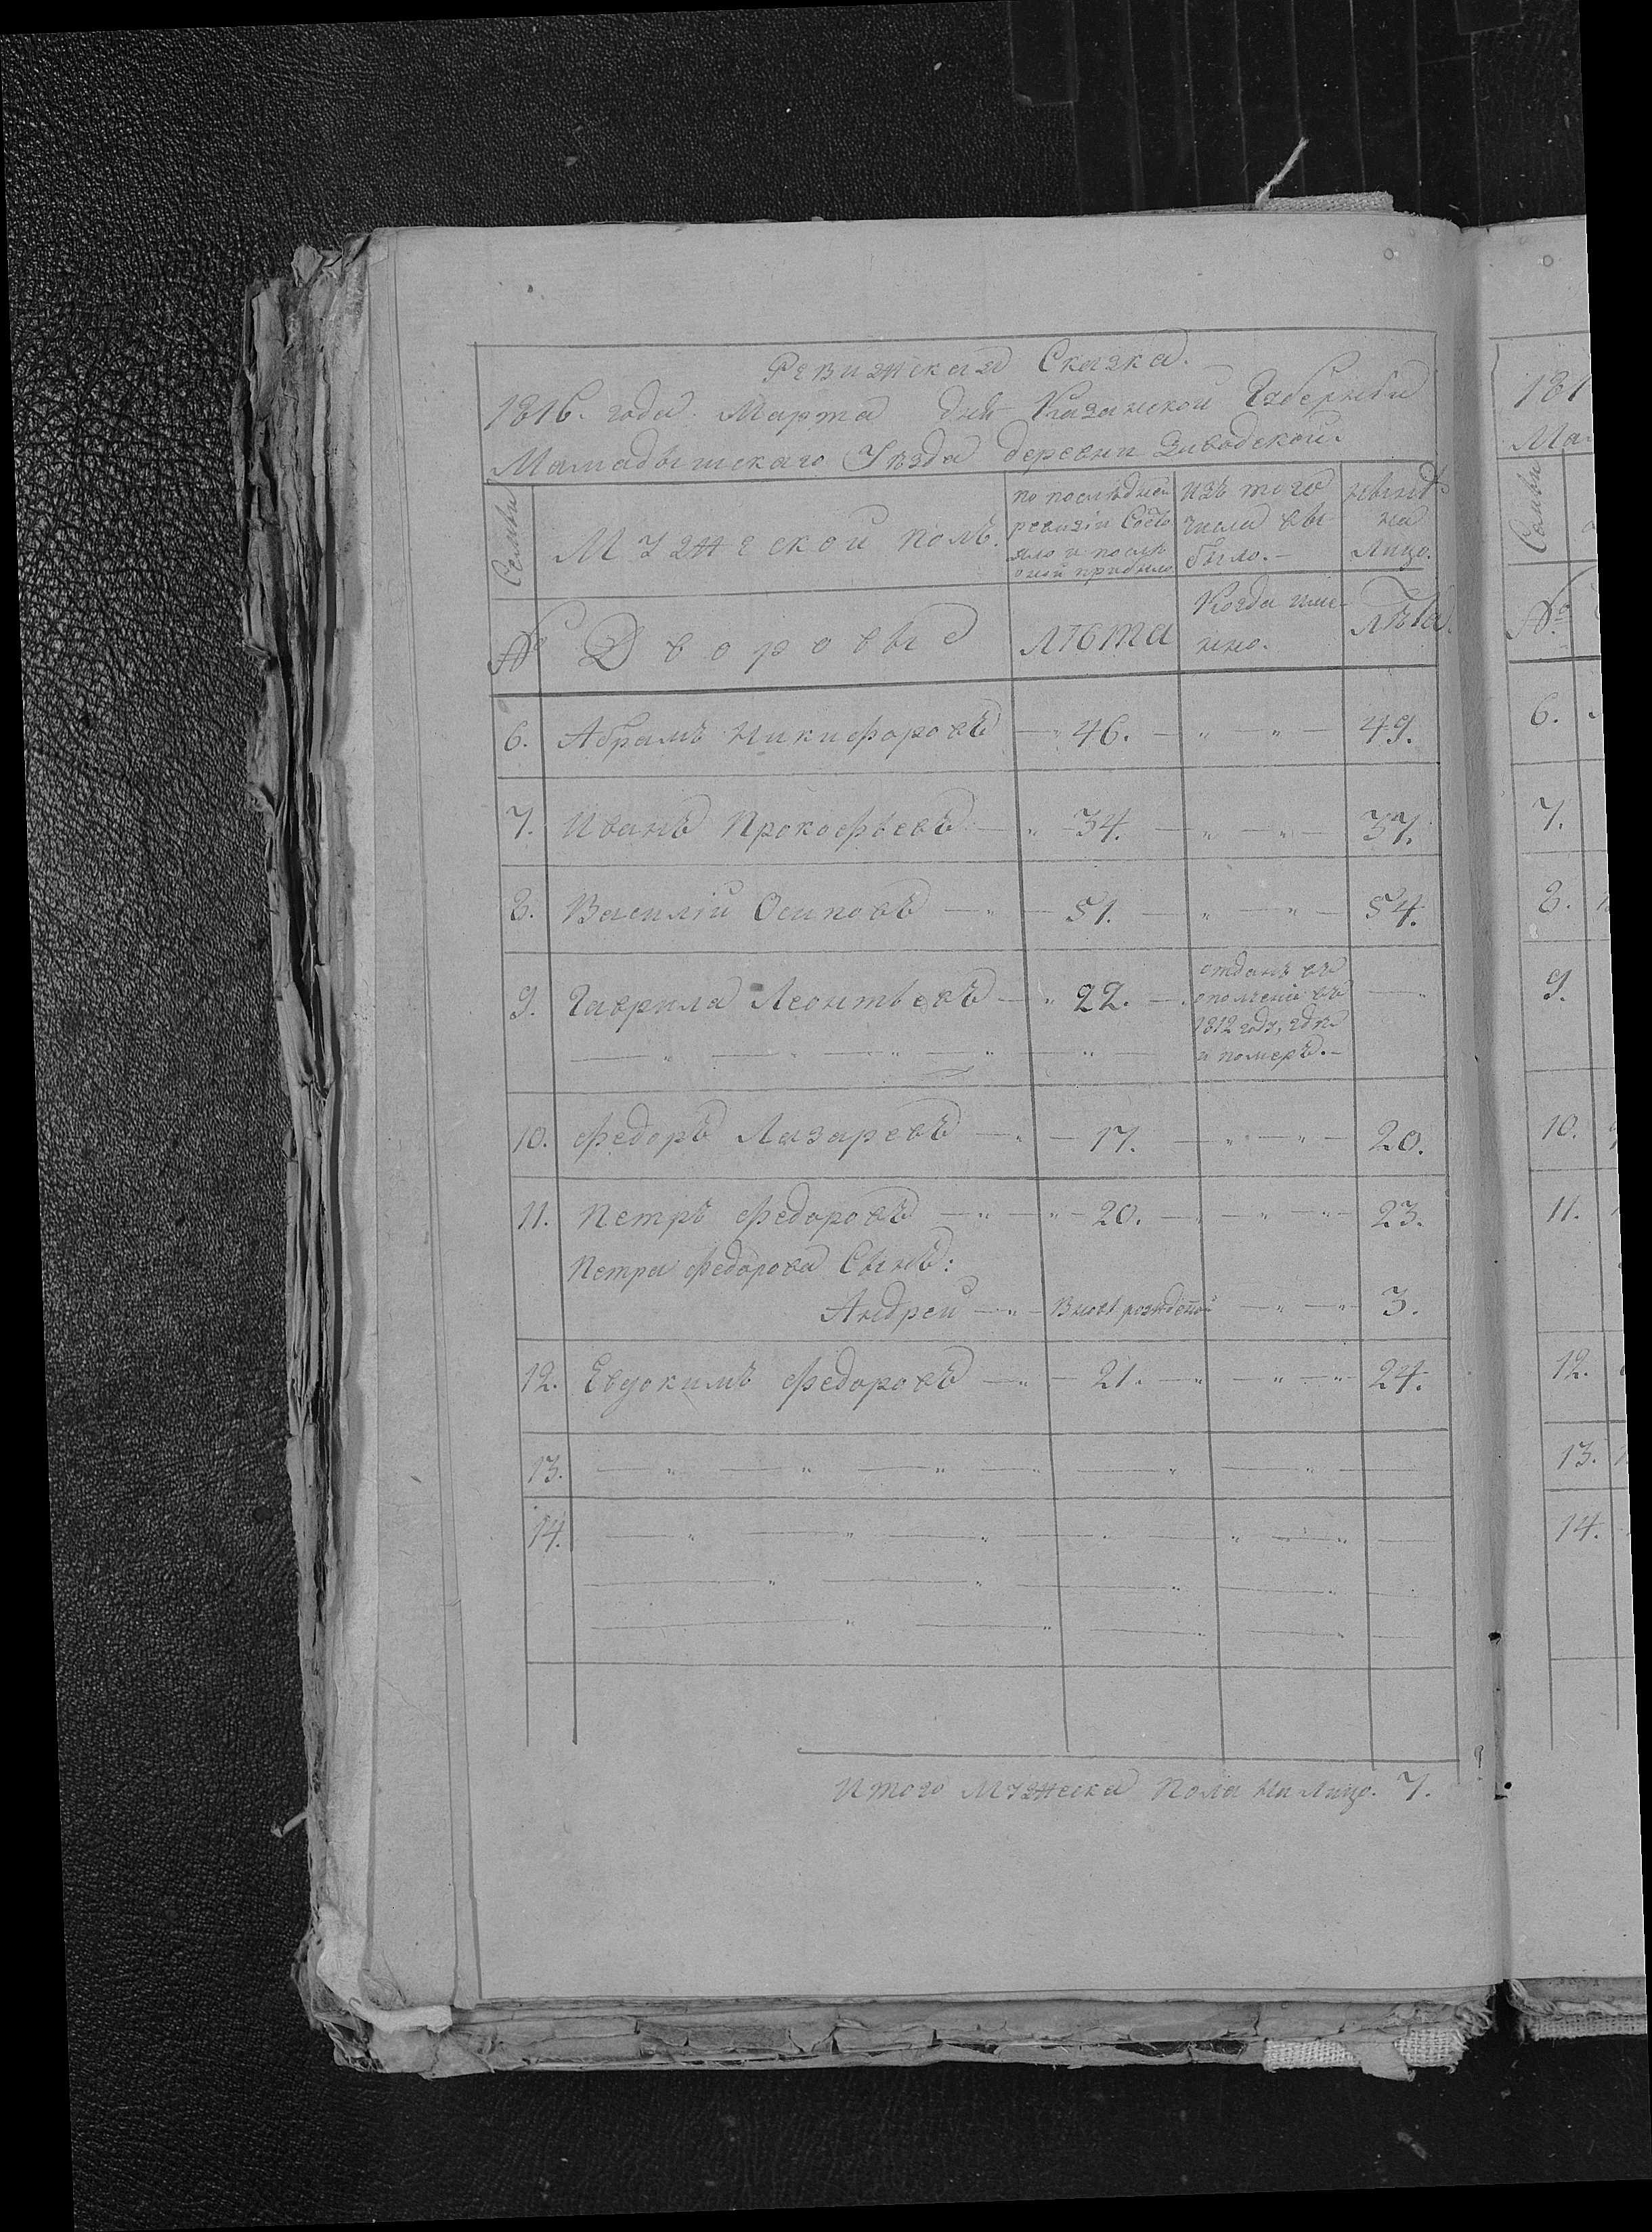 Ревижская Сказка.
1816. года Марта дня Казанской Губерніи
Мамадышскаго Уѣзда деревни Заводской.
Семьи
Мужеской полъ.
по послѣдней ревизіи состояло и послѣ оной прибыло
изъ того числа выбыло.
нынѣ на Лицо.
№
Дворовые
лѣта
Когда именно.
лѣта
6. Абрамъ Никифоровъ — 46. — „ — „ — 49.
7. Иванъ Прокофьевъ — „ 34. — „ — „ — 37.
8. Василій Осиповъ — „ — 51. — „ — „ — 54.
9. Гаврила Леонтьевъ — „ 22. — отданъ въ
ополченіе въ
1812 году, гдѣ
и померъ. —
10. Федоръ Лазаревъ — „ — 17. — „ — „ — 20.
11. Петръ Федоровъ — „ — „ — 20. — „ — „ — 23.
Петра Федорова Сынъ:
Андрей — „ — Вновь рожденой — „ — „ 3.
12. Евдокимъ Федоровъ — „ — 21. — „ — „ — „ 24.
13. — „ — „ — „ — „ — „ — „ —
14. — „ — „ — „ — „ — „ — „ —
Итого Мужеска Пола на Лицо. 7.
181
Ма
Семьи
№
6.
7.
8.
9.
10.
11.
12.
13.
14.